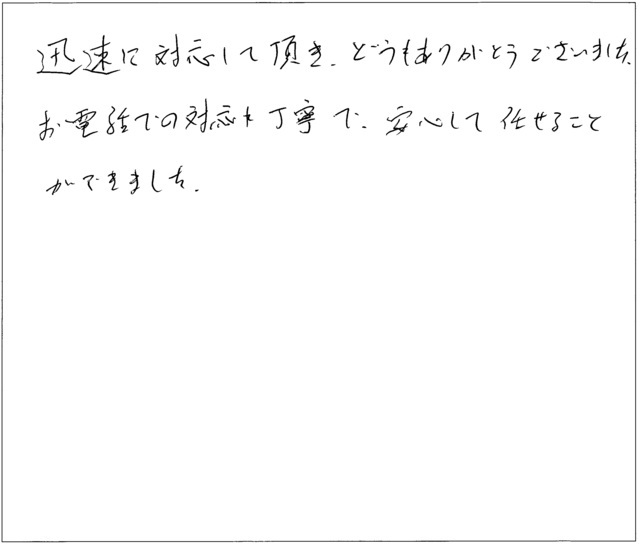 迅速に対応して頂き、どうもありがとうございました。
お電話での対応も丁寧で、安心して任せること
ができました。